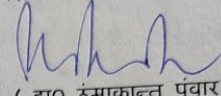 ( डा० उमाकान्त पंवार